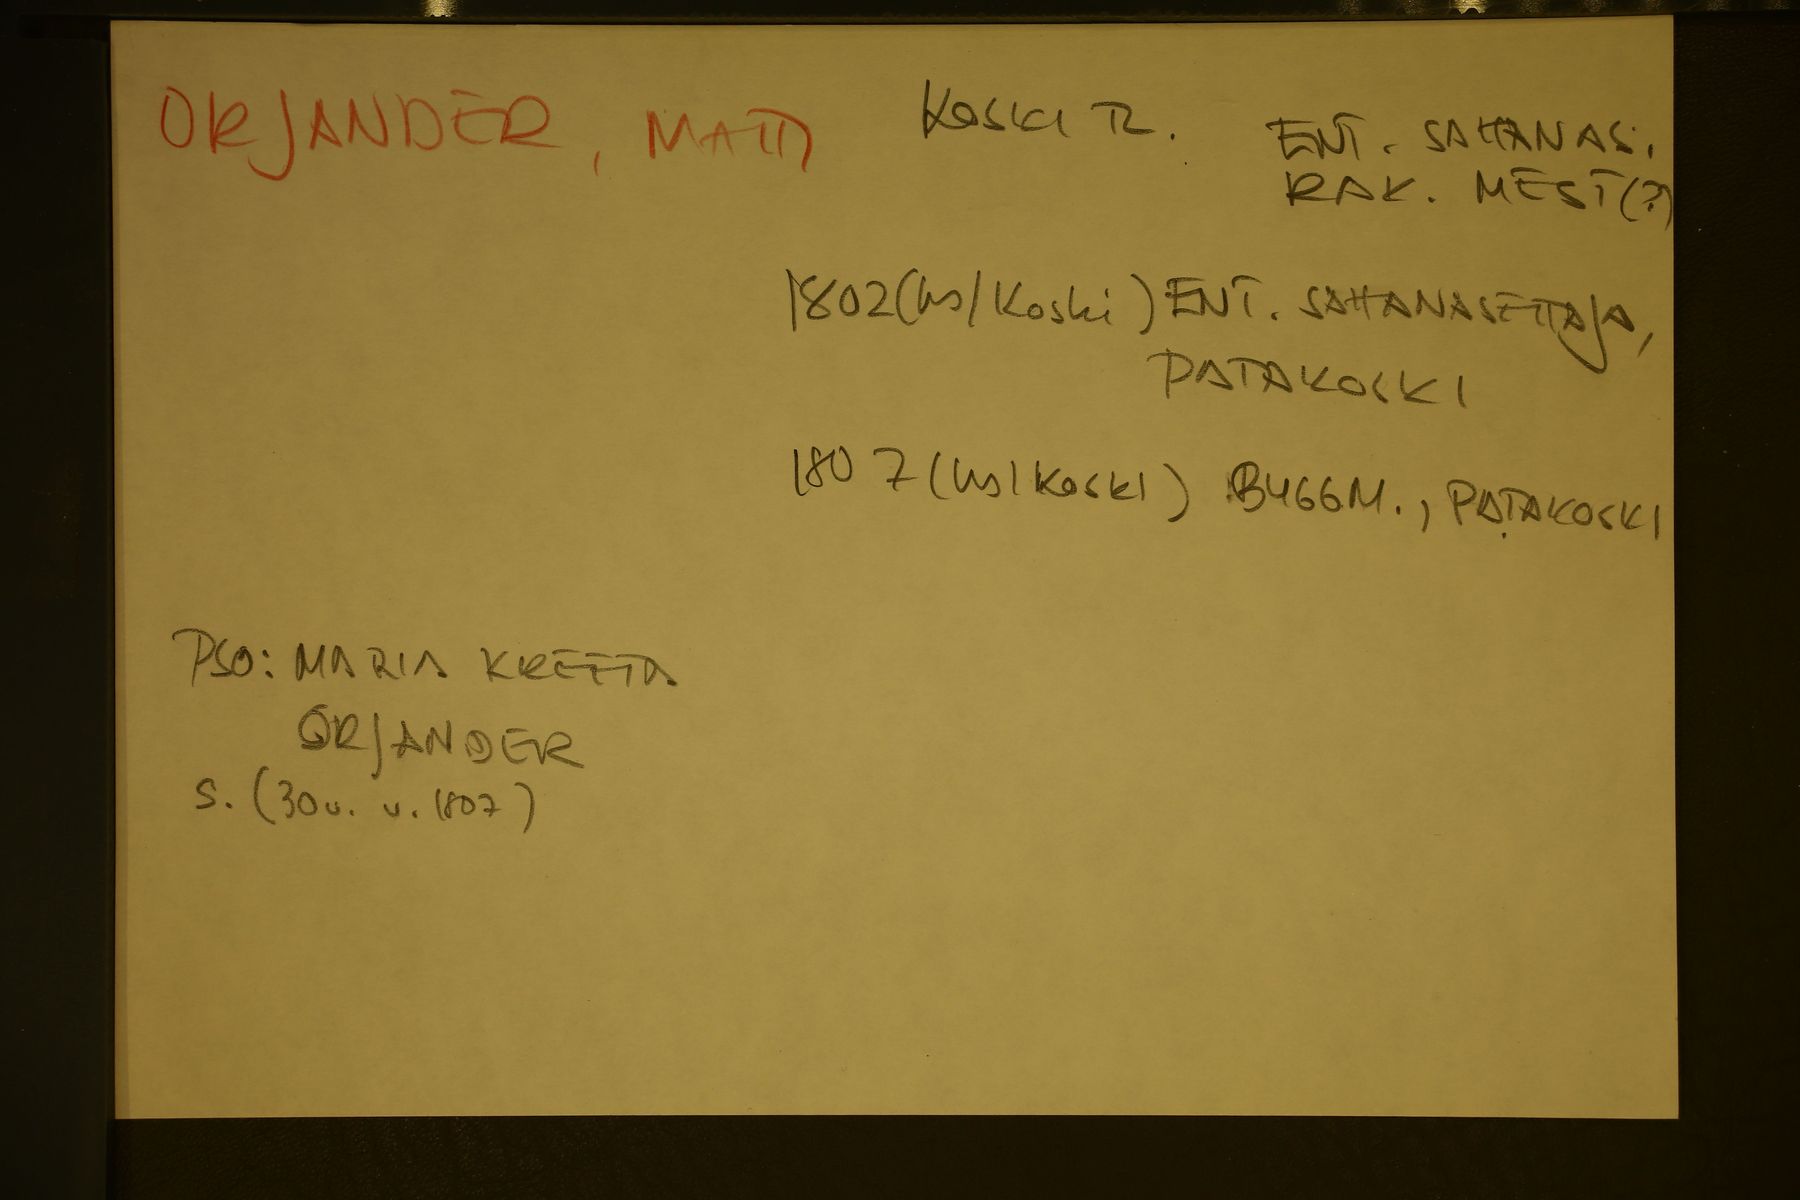 ORJANDER, MATTI KOSKI TL. ENT. SAHANAS.
RAK. MEST(?)
1802 (hs/Koski) ENT. SAHANASETTAJA,
PATAKOSKI
1807 (hs/KOSKI) BYGGM., PATAKOSKI
PSO: MARIA KREETA
ORJANDER
S. (30 v. v. 1807)